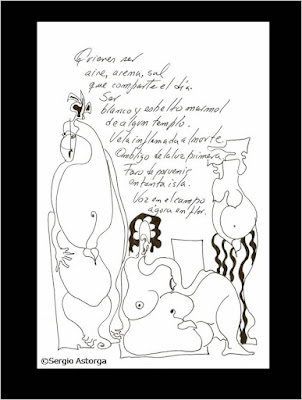 Quieres ser
aire, arena, sal
que comparte el día.
Ser
blanco y esbelto marmol
de algun templo.
Vela inflamada al norte.
Ombligo de la luz primera
Faro de porvenir
en tanta isla.
Voz en el campo
agora en flor.
©Sergio Astorga